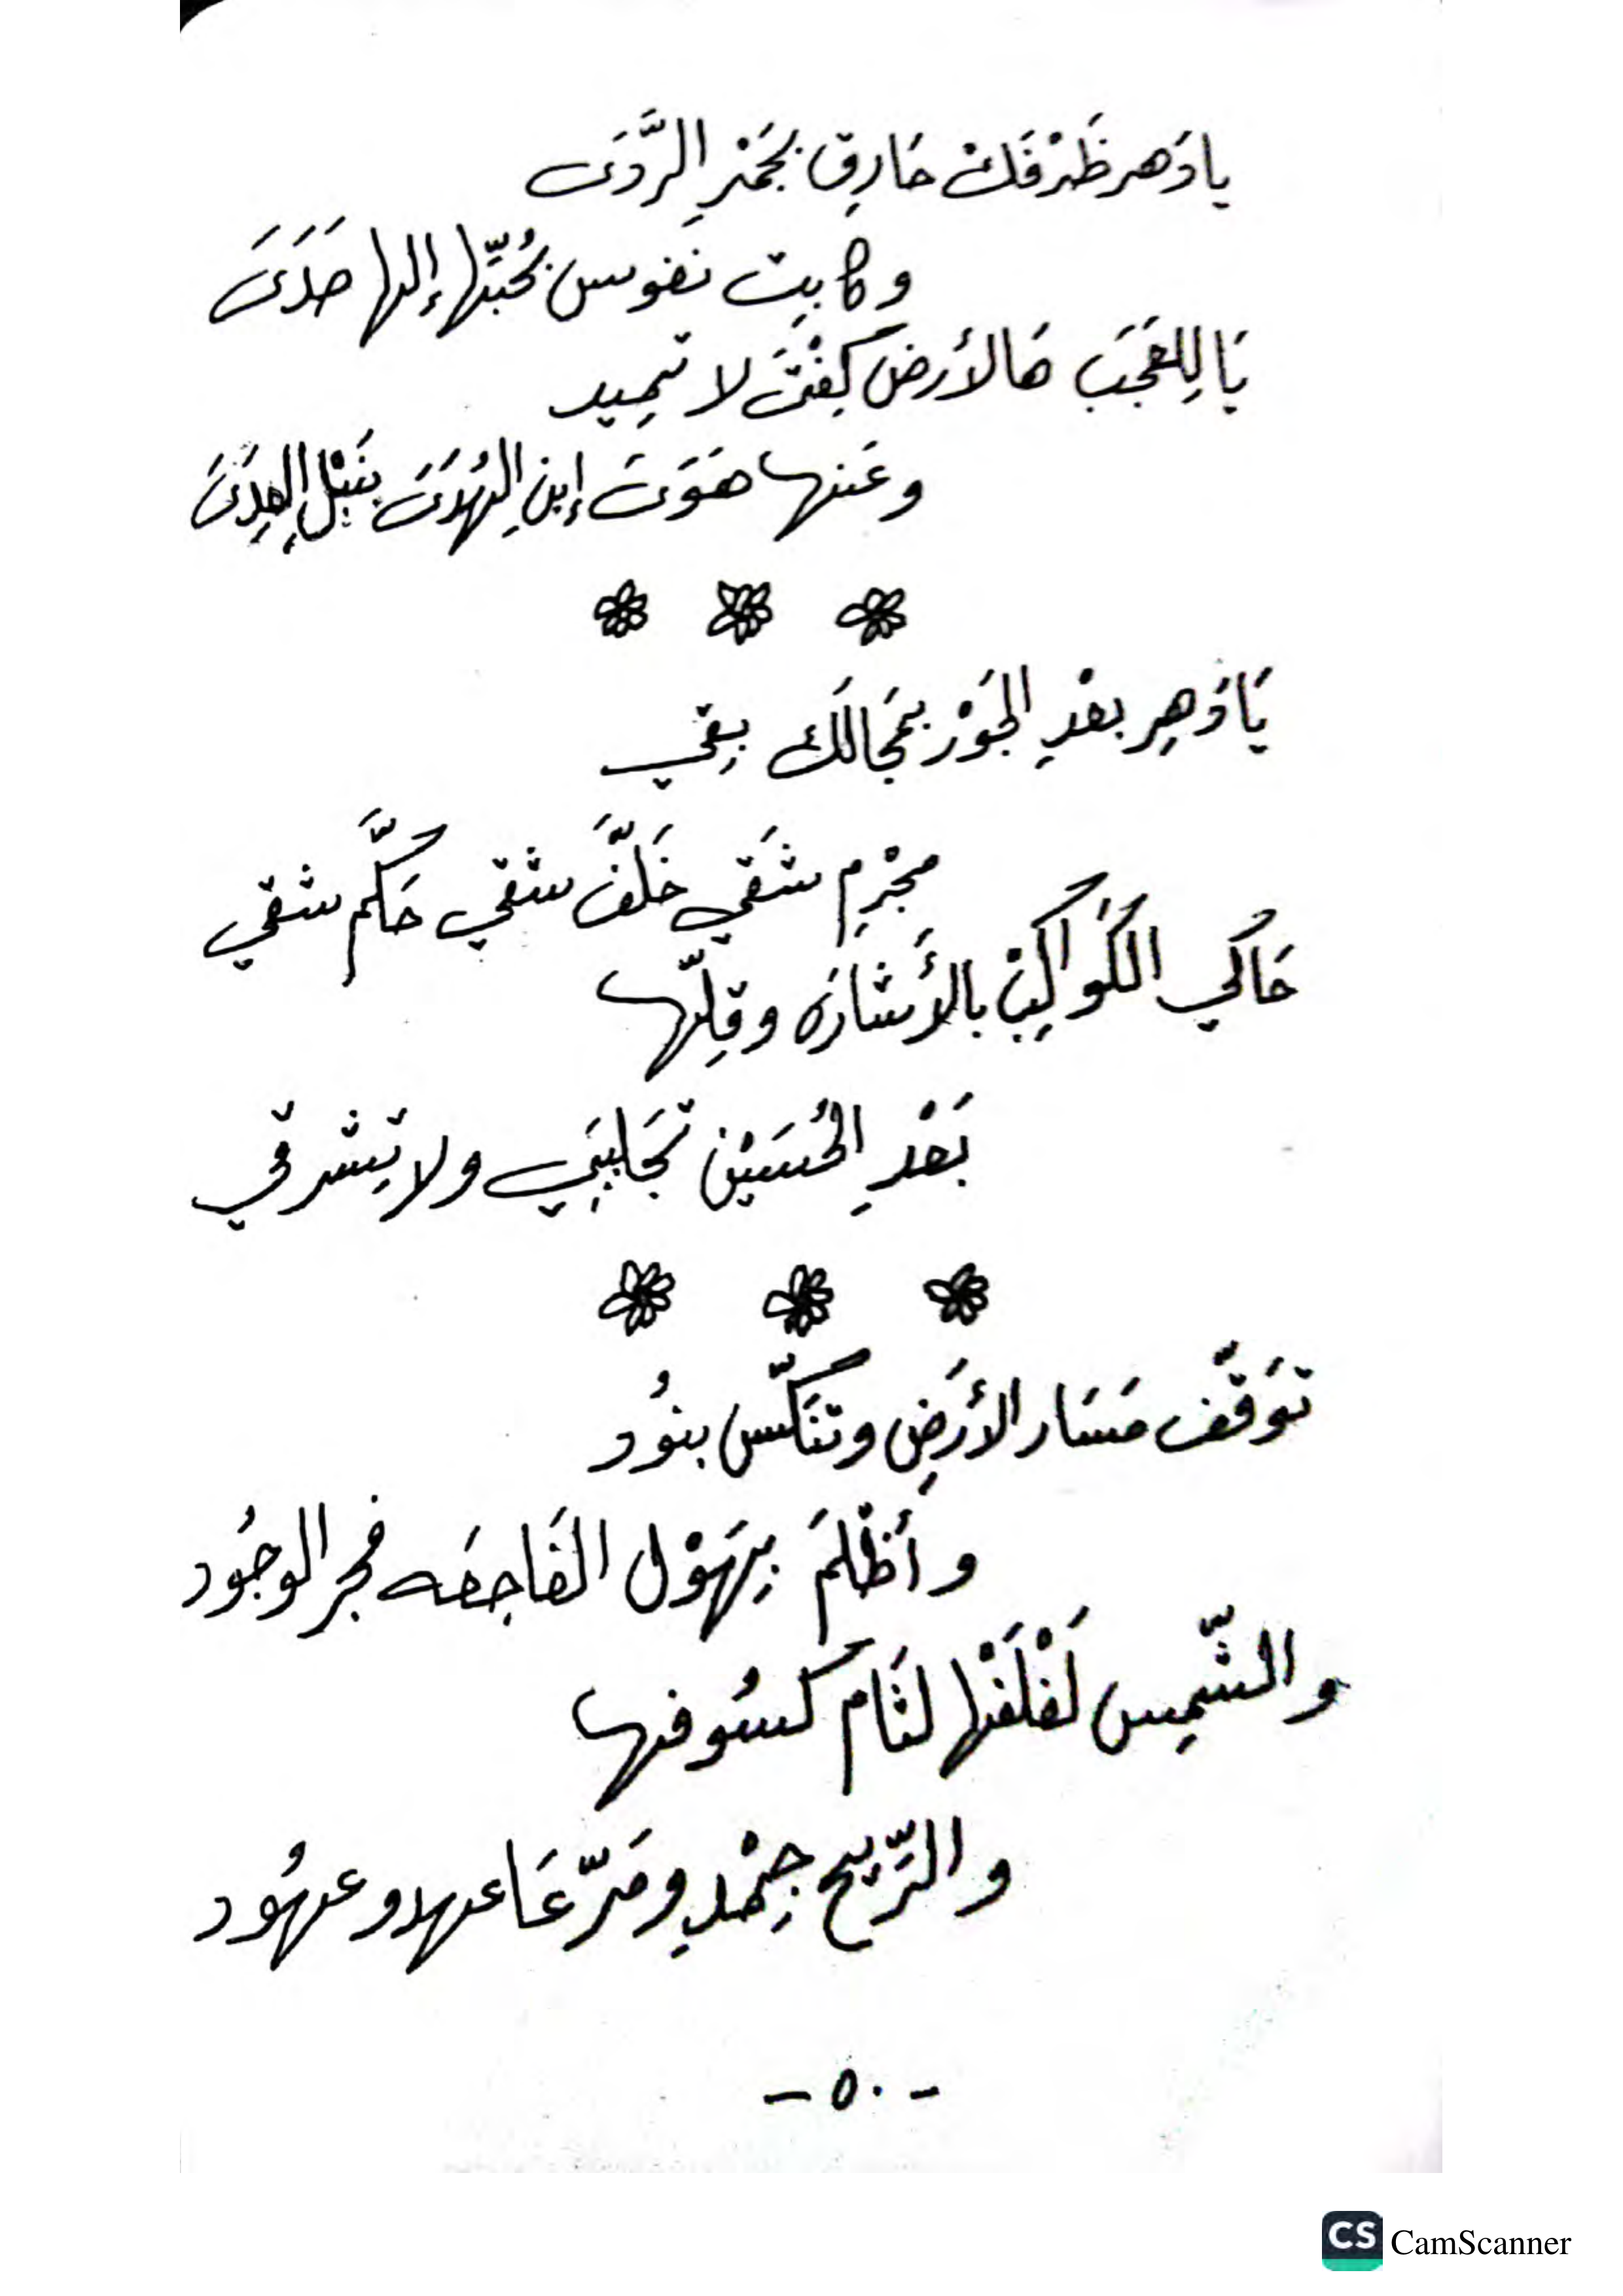 يادَهر ظَرْفَكْ حَارِق بجَمْرِ الرَّدَى
وكابِت نفوس بحُبّها إلها صَدَى
يَا لِلعَجَبَ هَالأرض كِفْتَ لا تمِيد
وعَنها هَوَى إبنِ الهُدَى بنَبْلِ العِدَى
يَادَهِر بعْدِ الجَوْر بمَجَالَك بِقي
مجْرِم شَقي خَلَّفَ شقي حَكَّم شقي
حَاكي الكَواكِبْ بالأَشارَه وقِلّها
بَعْدِ الحُسَيْن تجَلببَي ولا تِشرقي
توَقّف مَسَار الأرَضِ وتنَكّس بنوُد
وأظْلمَ بِهَوْل الفَاجعَه فجر الوجُود
والشّمِس لَفْلَفْها لثَام كسُوفها
والرّيح جِمْدِ ومَرّ عَا عهد وعهُود
- ٥٠ -
CS CamScanner